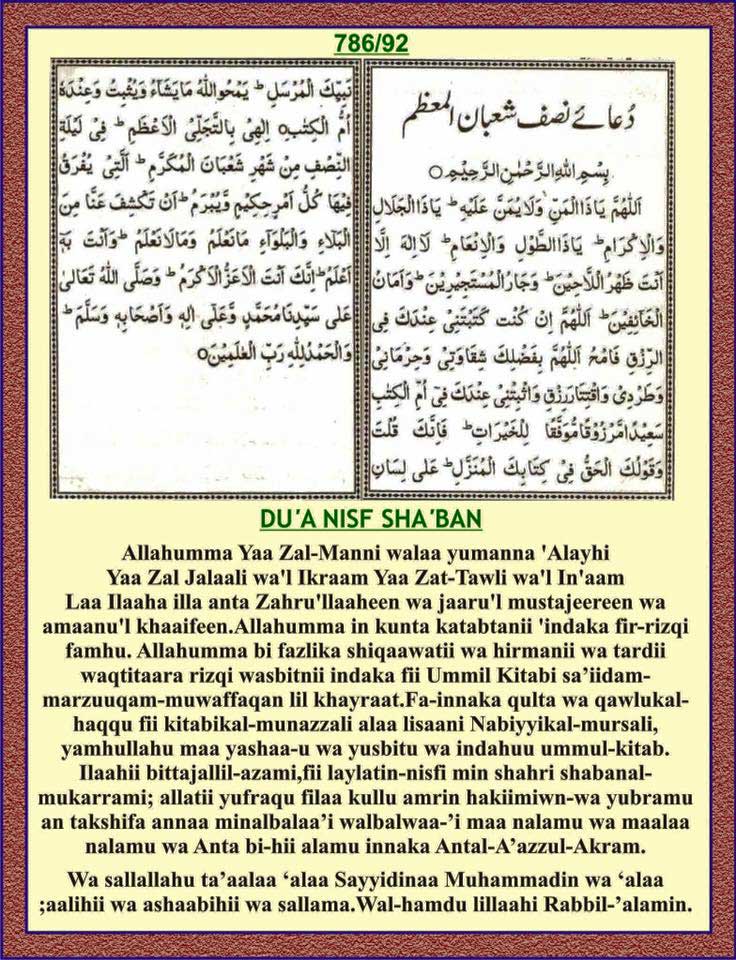 786/92
دُعائے نصف شعبان المعظم
بِسْمِ اللهِ الرَّحْمٰنِ الرَّحِيْمِ○
اَللّٰهُمَّ يَاذَا الْمَنِّ وَلَا يُمَنُّ عَلَيْهِ ؕ يَاذَا الْجَلَالِ
وَالْاِكْرَامِ ؕ يَاذَا الطَّوْلِ وَالْاِنْعَامِ ؕ لَآ اِلٰهَ اِلَّا
اَنْتَ ظَهْرُ اللَّاجِيْنَ ؕ وَجَارُ الْمُسْتَجِيْرِيْنَ ؕ وَاَمَانُ
الْخَآئِفِيْنَ ؕ اَللّٰهُمَّ اِنْ كُنْتَ كَتَبْتَنِيْ عِنْدَكَ فِى
الرِّزْقِ فَامْحُ اَللّٰهُمَّ بِفَضْلِكَ شِقَاوَتِيْ وَحِرْمَانِيْ
وَطَرْدِيْ وَاقْتِتَارَ رِزْقِ وَاثْبِتْنِيْ عِنْدَكَ فِيْٓ اُمِّ الْكِتٰبِ
سَعِيْدًا مَّرْزُوْقًا مُّوَفَّقًا لِّلْخَيْرَاتِ ؕ فَاِنَّكَ قُلْتَ
وَقَوْلُكَ الْحَقُّ فِيْ كِتَابِكَ الْمُنَزَّلِ ؕ عَلٰى لِسَانِ
نَبِيِّكَ الْمُرْسَلِ ؕ يَمْحُو اللّٰهُ مَا يَشَآءُ وَيُثْبِتُ وَعِنْدَهٗٓ
اُمُّ الْكِتٰبِ○ اِلٰهِيْ بِالتَّجَلِّيِّ الْاَعْظَمِ ؕ فِيْ لَيْلَةِ
النِّصْفِ مِنْ شَهْرِ شَعْبَانَ الْمُكَرَّمِ ؕ الَّتِيْ يُفْرَقُ
فِيْهَا كُلُّ اَمْرٍ حَكِيْمٍ وَّيُبْرَمُ ؕ اَنْ تَكْشِفَ عَنَّا مِنَ
الْبَلَآءِ وَالْبَلْوَآءِ مَا نَعْلَمُ وَمَا لَا نَعْلَمُ ؕ وَاَنْتَ بِهٖٓ
اَعْلَمُ ؕ اِنَّكَ اَنْتَ الْاَعَزُّ الْاَكْرَمُ ؕ وَصَلَّى اللّٰهُ تَعَالٰى
عَلٰى سَيِّدِنَا مُحَمَّدٍ وَّعَلٰٓى اٰلِهٖ وَاَصْحَابِهٖ وَسَلَّمَ ؕ
وَالْحَمْدُ لِلّٰهِ رَبِّ الْعٰلَمِيْنَ○
DU'A NISF SHA'BAN
Allahumma Yaa Zal-Manni walaa yumanna 'Alayhi
Yaa Zal Jalaali wa'l Ikraam Yaa Zat-Tawli wa'l In'aam
Laa Ilaaha illa anta Zahru'llaaheen wa jaaru'l mustajeereen wa
amaanu'l khaaifeen.Allahumma in kunta katabtanii 'indaka fir-rizqi
famhu. Allahumma bi fazlika shiqaawatii wa hirmanii wa tardii
waqtitaara rizqi wasbitnii indaka fii Ummil Kitabi sa'iidam-
marzuuqam-muwaffaqan lil khayraat.Fa-innaka qulta wa qawlukal-
haqqu fii kitabikal-munazzali alaa lisaani Nabiyyikal-mursali,
yamhullahu maa yashaa-u wa yusbitu wa indahuu ummul-kitab.
Ilaahii bittajallil-azami,fii laylatin-nisfi min shahri shabanal-
mukarrami; allatii yufraqu fiilaa kullu amrin hakiimiwn-wa yubramu
an takshifa annaa minalbalaa'i walbalwaa-'i maa nalamu wa maalaa
nalamu wa Anta bi-hii alamu innaka Antal-A'azzul-Akram.
Wa sallallahu ta'aalaa 'alaa Sayyidinaa Muhammadin wa 'alaa
;aalihii wa ashaabihii wa sallama.Wal-hamdu lillaahi Rabbil-'alamin.